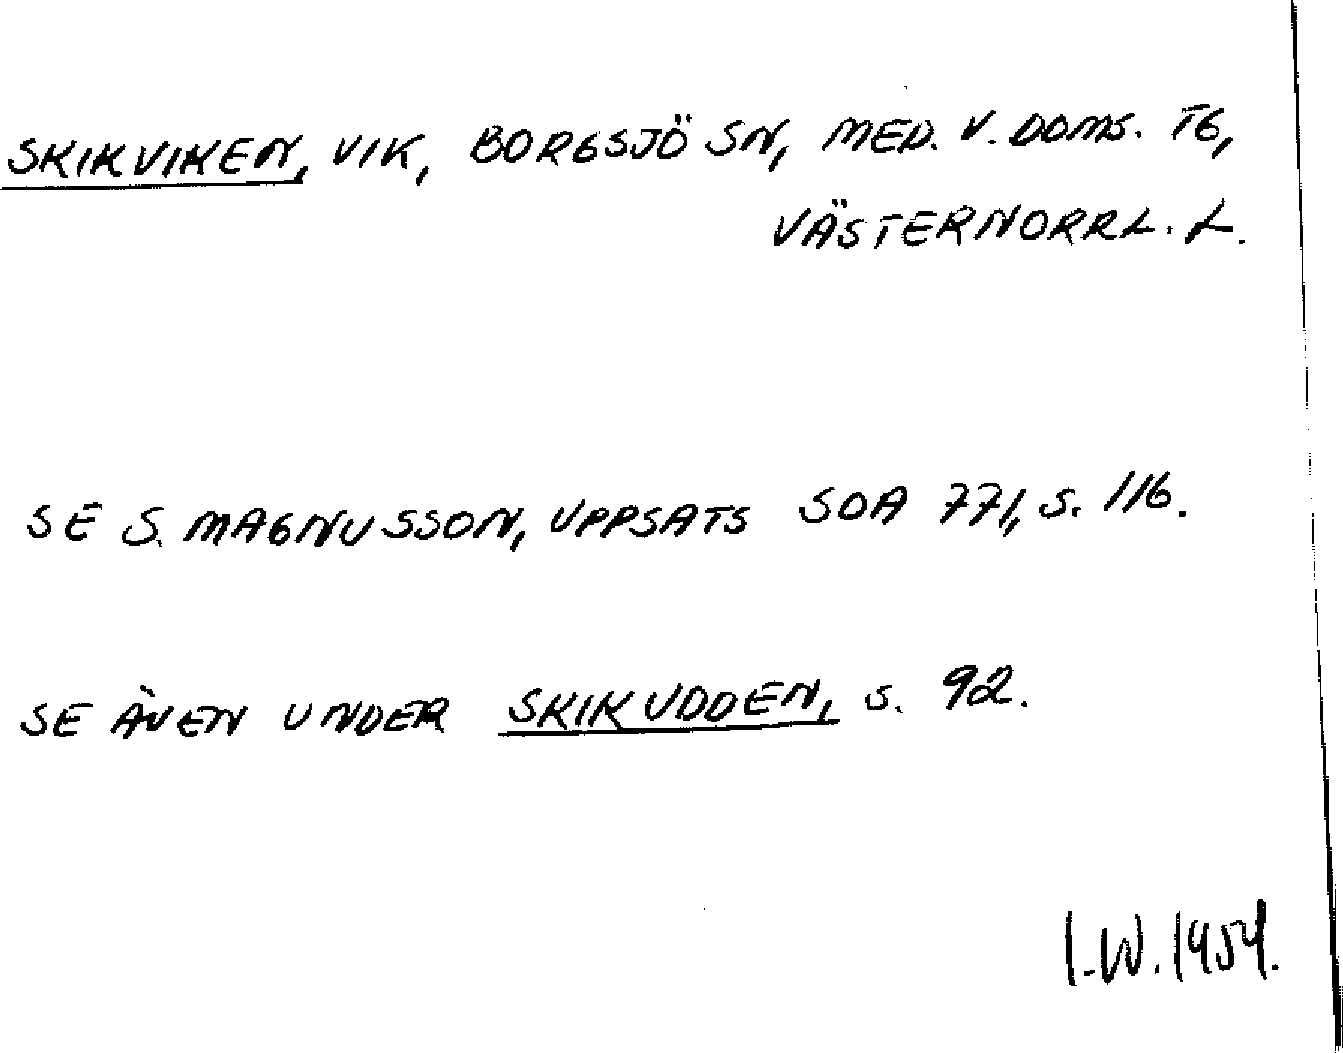 SKIKVIKEN, VIK, BORGSJÖ SN, MED. V. DOMS. TG,
VÄSTERNORRL. L.
SE S. MAGNUSSON, UPPSATS SOA 771, S. 116.
SE ÄVEN UNDER SKIKUDDEN, S. 92.
I.W. 1954.